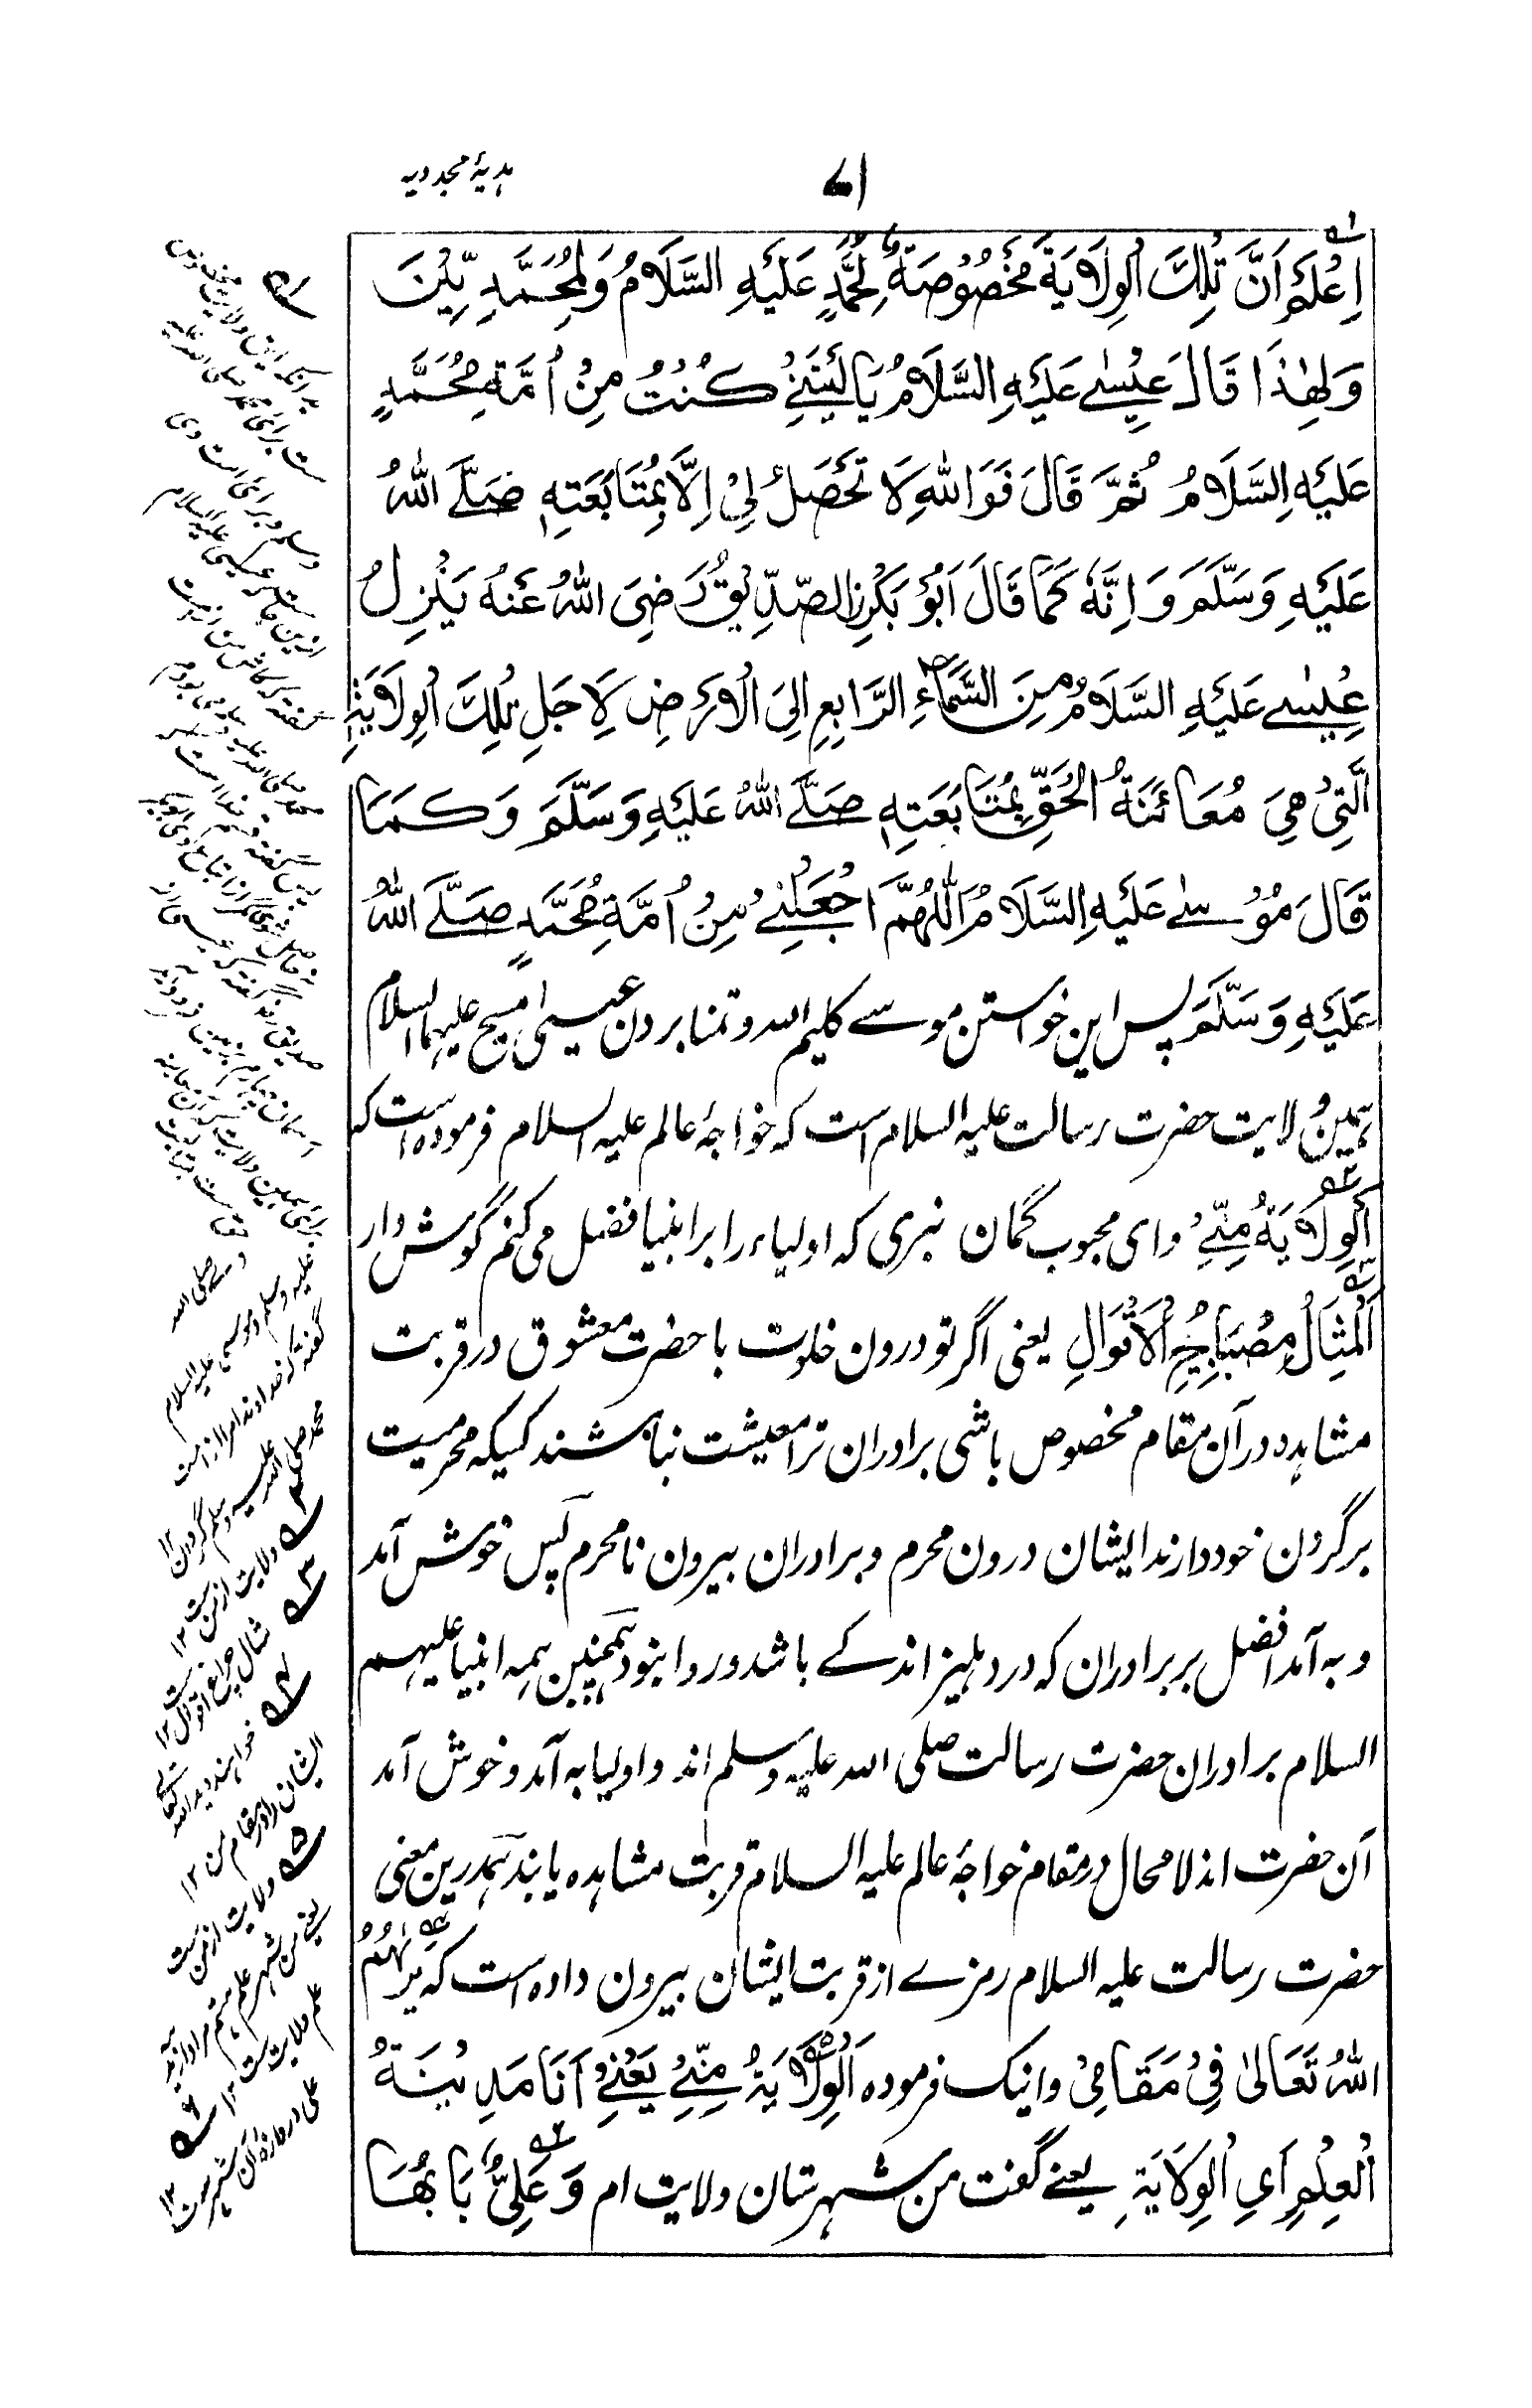 ہدیۂ مجددیہ
۷۱
اِعْلَمْ اَنَّ تِلْكَ الْوِلَايَةَ مَخْصُوْصَةٌ لِمُحَمَّدٍ عَلَيْهِ السَّلَامُ وَلِمُحَمَّدِيِّيْنَ
وَلِهٰذَا قَالَ عِيْسٰے عَلَيْهِ السَّلَامُ يَا لَيْتَنِيْ كُنْتُ مِنْ اُمَّةِ مُحَمَّدٍ
عَلَيْهِ السَّلَامُ ثُمَّ قَالَ فَوَاللّٰهِ لَا تَحْصَلُ لِيْ اِلَّا بِمُتَابَعَتِهٖ صَلَّے اللّٰهُ
عَلَيْهِ وَسَلَّمَ وَاِنَّهٗ كَمَا قَالَ اَبُوْ بَكْرِنِ الصِّدِّيْقُ رَضِيَ اللّٰهُ عَنْهُ يَنْزِلُ
عِيْسٰے عَلَيْهِ السَّلَامُ مِنَ السَّمَاءِ الرَّابِعِ اِلَى الْاَرْضِ لِاَجَلِ تِلْكَ الْوِلَايَةِ
الَّتِيْ هِيَ مُعَائَنَةُ الْحَقِّ بِمُتَابَعَتِهٖ صَلَّے اللّٰهُ عَلَيْهِ وَسَلَّمَ وَكَمَا
قَالَ مُوْسٰے عَلَيْهِ السَّلَامُ اَللّٰهُمَّ اجْعَلْنِيْ مِنْ اُمَّةِ مُحَمَّدٍ صَلَّے اللّٰهُ
عَلَيْهِ وَسَلَّمَ پس این خواستن موسے کلیم اللہ و تمنا بردن عیسیٰ مسیح علیہما السلام
ہمین ولایت حضرت رسالت علیہ السلام است کہ خواجۂ عالم علیہ السلام فرمودہ است کہ
اَلْوِلَايَةُ مِنِّيْ و ای محبوب گمان نبری کہ اولیاء را بر انبیا فضل می کنم گوش دار
اَلْمِثَالُ مِصْبَاحُ الْاَقْوَالِ یعنی اگر تو درون خلوت با حضرت معشوق در قربت
مشاہدہ در آن مقام مخصوص باشی برادران ترا معیشت نباشند کسیکہ محرمیت
بر گردن خود دارند ایشان درون محرم و برادران بیرون نامحرم پس خوش آمد
و بہ آمد افضل بر برادران کہ در دہلیز اند کے باشد و روا بنود ہمچنین ہمہ انبیا علیہم
السلام برادران حضرت رسالت صلی اللہ علیہ وسلم اند و اولیا بہ آمد و خوش آمد
آن حضرت اند لا محال در مقام خواجۂ عالم علیہ السلام قربت مشاہدہ یابند ہمدرین معنی
حضرت رسالت علیہ السلام رمزے از قربت ایشان بیرون دادہ است کہ يَرٰهُمُ
اللّٰهُ تَعَالٰى فِيْ مَقَامِيْ و انیک فرمودہ اَلْوِلَايَةُ مِنِّيْ يَعْنِيْ اَنَا مَدِيْنَةُ
الْعِلْمِ اَيِ الْوِلَايَةِ یعنے گفت من شہرستان ولایت ام وَعَلِيٌّ بَابُهَا
علیہ وسلم و موسی علیہ السلام
گفتہ کہ خداوندا مرا از امت
محمد صلی اللہ علیہ وسلم گردان ۱۲
ولایت از من ست ۱۲
مثال چراغ اقوال ست ۱۲
ایشان را در مقام من ۱۲
ولایت از من ست
یعنے من شہر علم ہستم مراد از
علم ولایت ست ۱۲
علی دروازۂ آن شہر ست ۱۲